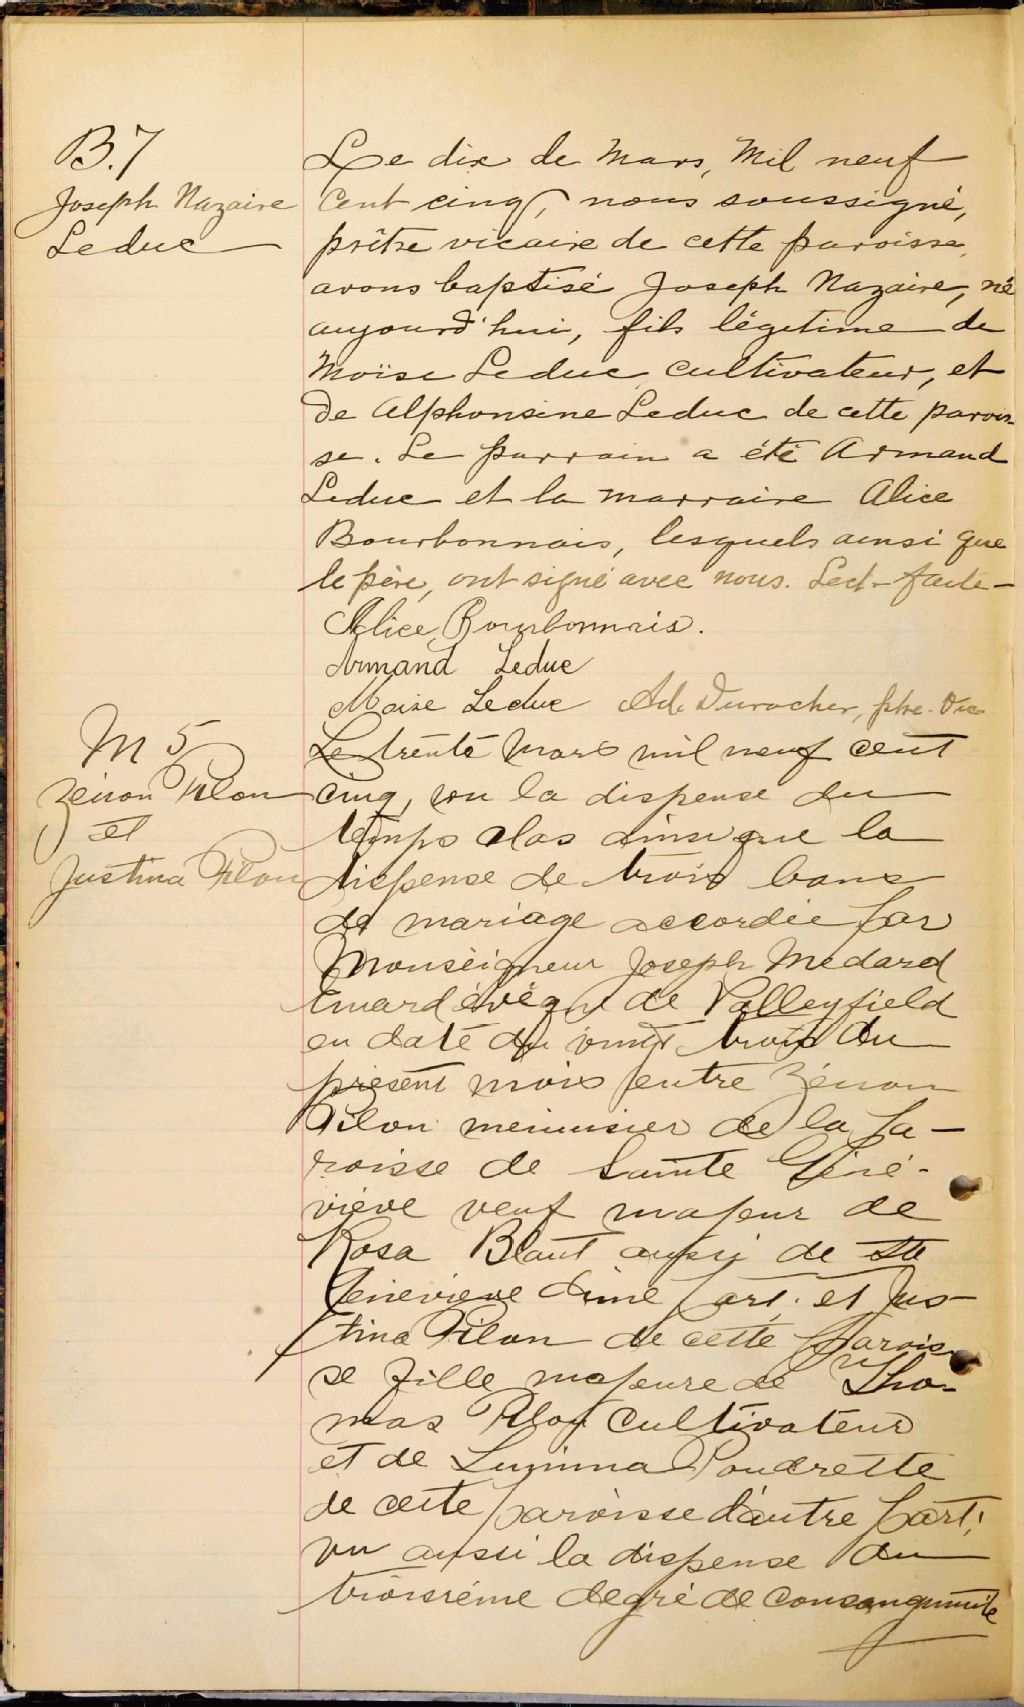 B.7
Joseph Nazaire
Leduc
Le dix de Mars, Mil neuf
Cent cinq, nous soussigné,
prêtre vicaire de cette paroisse,
avons baptisé Joseph Nazaire, né
aujourd'hui, fils légitime de
Moïse Leduc cultivateur, et
de Alphonsine Leduc de cette parois-
se. Le parrain a été Armand
Leduc et la marraine Alice
Bourbonnais, lesquels ainsi que
le père, ont signé avec nous. Lect. faite-
Alice Bourbonnais.
Armand Leduc
Moise Leduc Ad. Durocher, ptre. Vic
M 5
Zénon Pilon
et
Justina Pilon
Le trente Mars mil neuf cent
cinq, vu la dispense du
temps clos ainsi que la
dispense de trois bans
de mariage accordée par
Monseigneur Joseph Medard
Emard évêque de Valleyfield
en date du vingt trois du
présent mois entre Zénon
Pilon menuisier de la pa-
roisse de Sainte Géné-
viève veuf majeur de
Rosa aussi de Ste
Geneviève d'une part. et Jus-
tina Pilon de cette parois-
se fille majeure de Tho-
mas Pilon cultivateur
et de Poudrette
de cette paroisse d'autre part;
vu aussi la dispense du
troisième degré de consanguinité